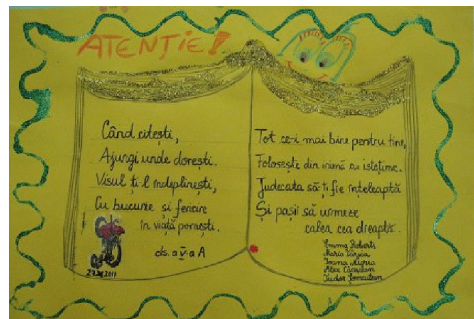 ATENȚIE!
Când citești,
Ajungi unde dorești.
Visul ți-l îndeplinești,
Cu bucurie și fericire
în viață pornești.
cls. a V-a A
Tot ce-i mai bine pentru tine,
Folosește din inimă cu istețime.
Judecata să-ți fie înțeleaptă
Și pașii să urmeze
calea cea dreaptă.
Emma Roberti
Maria
Ioana
Alex
Tudor